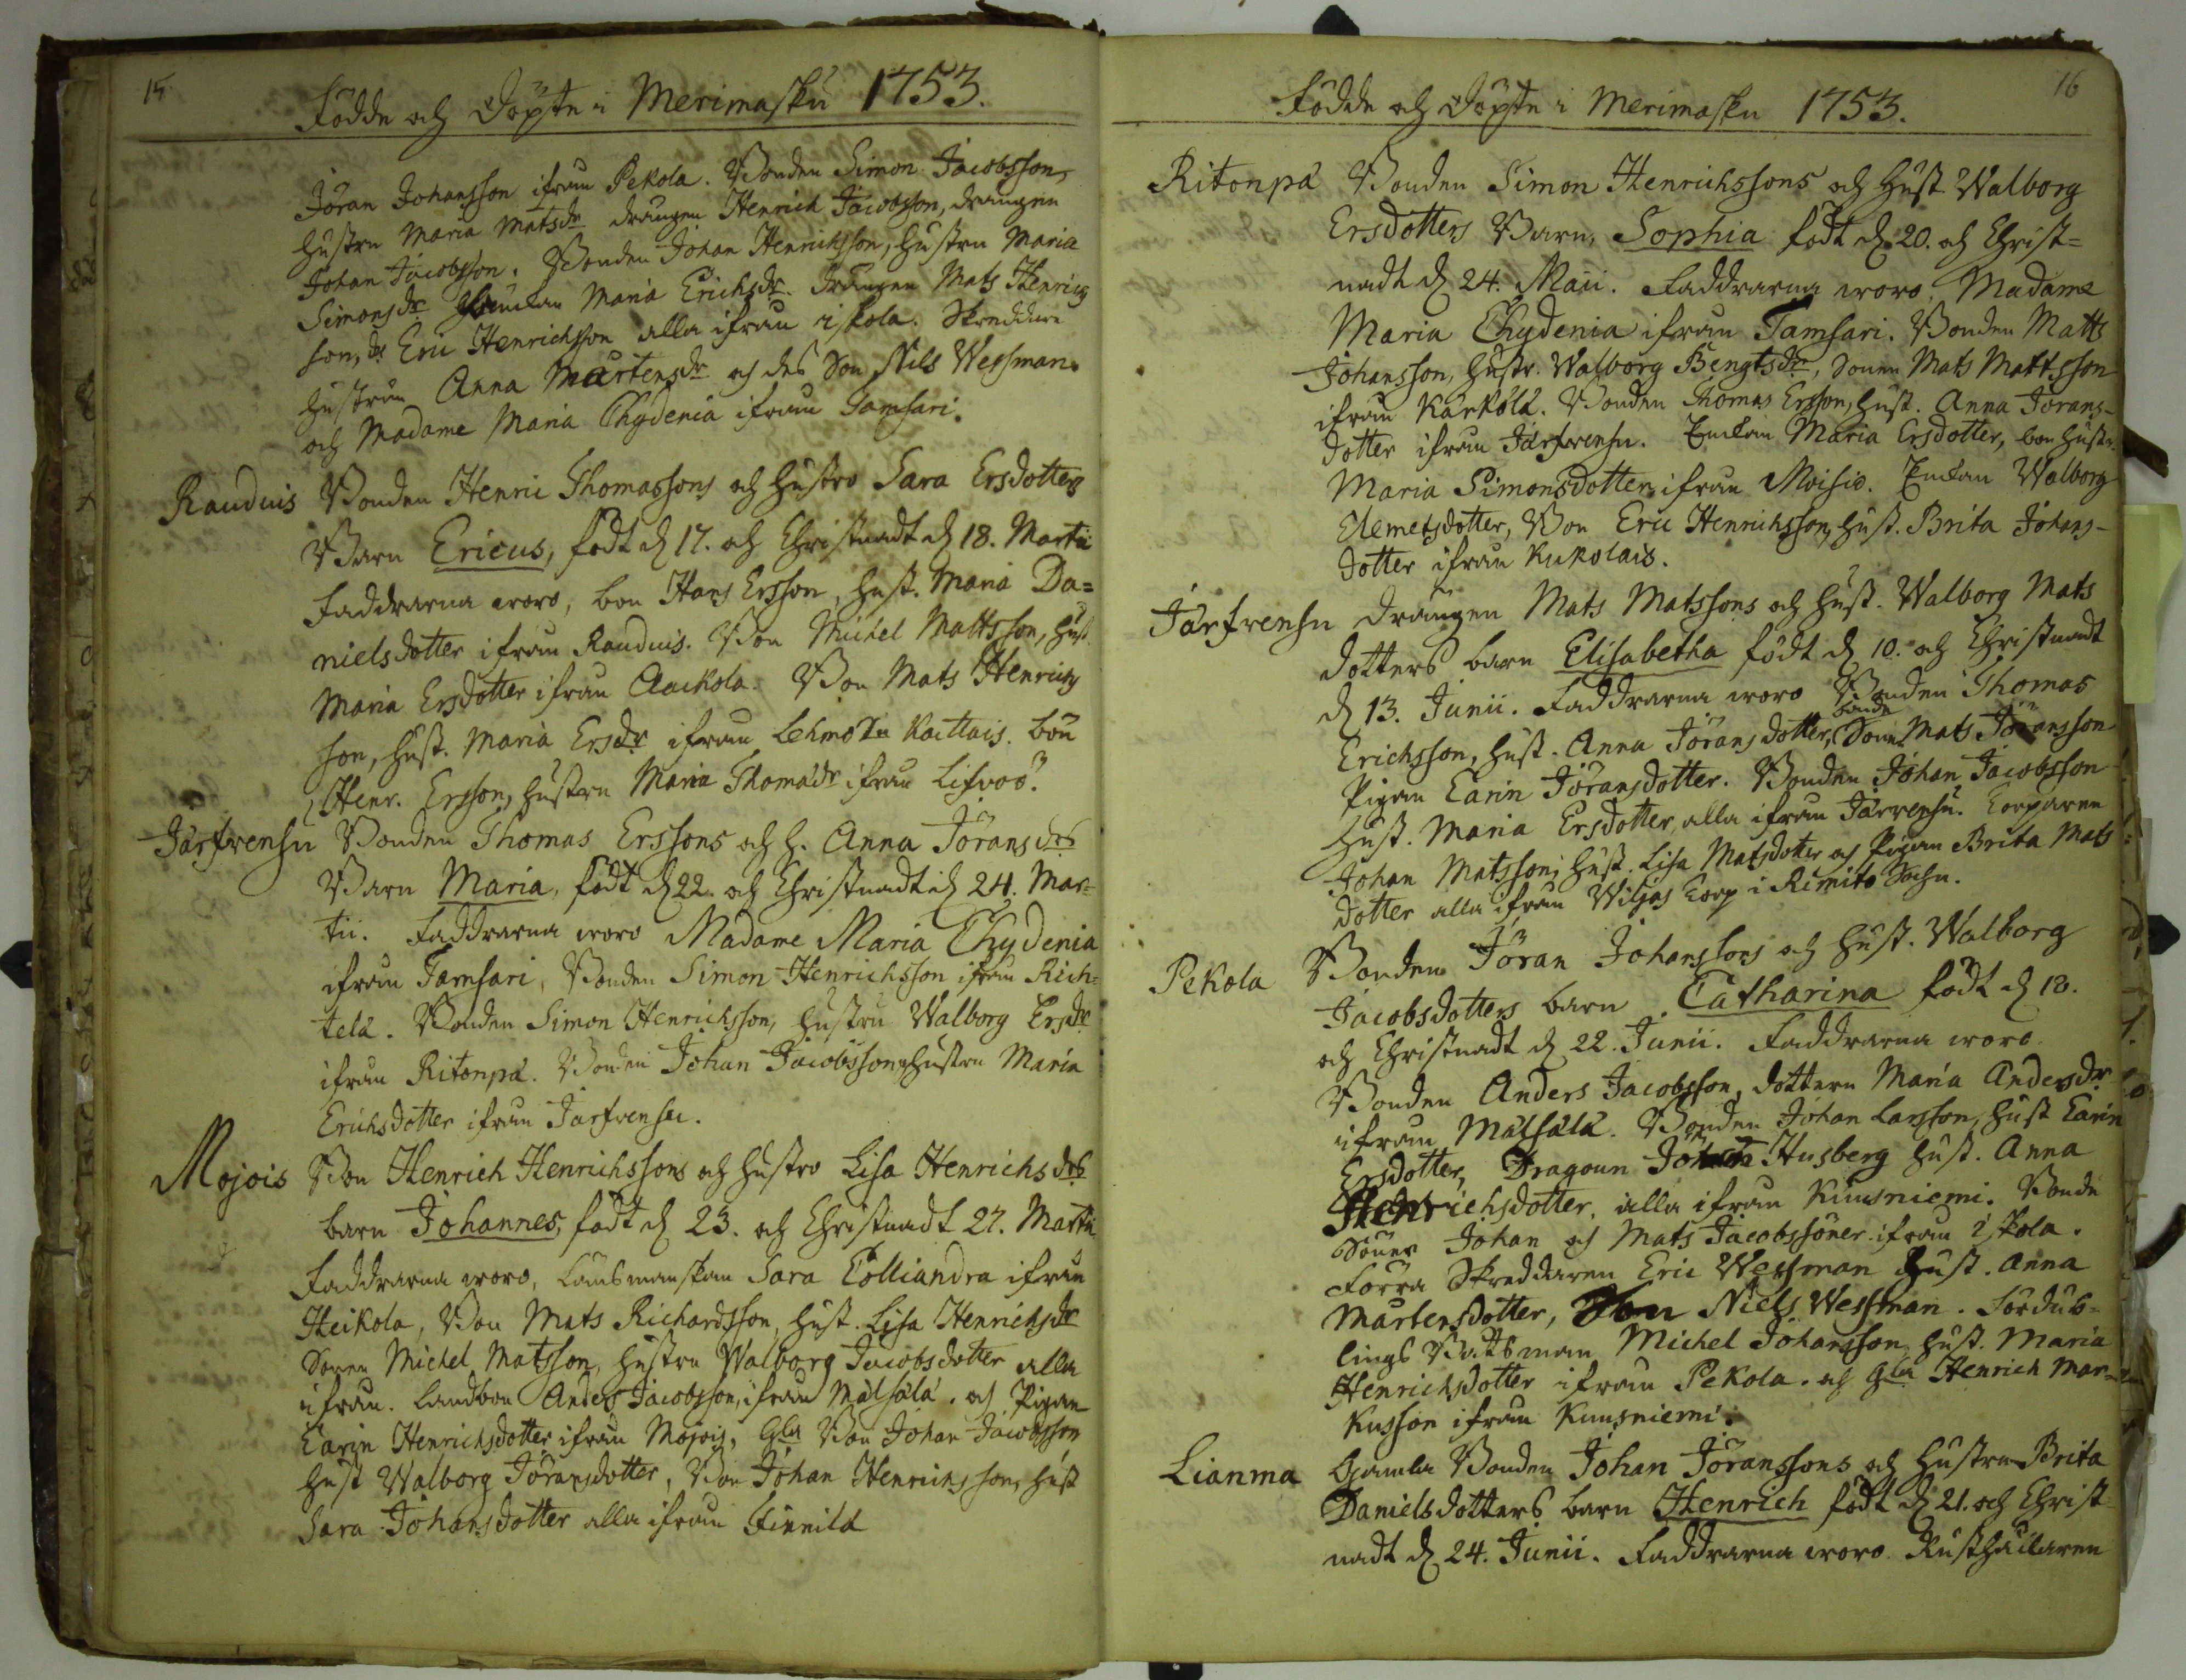 15
Födde och Döpte i Merimasku 1753.
Jöran Johansson ifrån Pekola. Bonden Simon Jacobsson,
hustru Maria Matsdr drängen Henrich Jacobsson, drängen
Johan Jacobsson. Bonden Johan Henrichsson, hustru Maria
Simonsdr Enckan Maria Erichsdr. Drängen Mats Henrichs
son, dr Eric Henrichsson alla ifrån iskola. Skreddare
hustrun Anna Mårtensdr och des Son Nils Wessman.
och Madame Maria Chydenia ifrån Tamsari.
Rauduis Bonden Henric Thomassons och hustro Sara Ersdotters
Barn Ericus, född d 17. och Christnadt d 18. Martii
Faddrarna woro, bon Hans Ersson, hust. Maria Da=
nielsdotter ifrån Rauduis. Bon Michel Mattsson, hust
Maria Ersdotter ifrån Aackola. Bon Mats Henrichs
son, hust. Maria Ersdr ifrån Lehmo Kaittais. bon
Henr. Ersson, hustru Maria Thomadr ifrån Lifvoö.
Järfrensu Bonden Thomas Erssons och h. Anna Jöransdrs
Barn Maria, född d 22. och Christnadt d 24. Mar=
tii. Faddrarna woro Madame Maria Chydenia
ifrån Tamsari, Bonden Simon Henrichsson ifrån Rich=
telä. Bonden Simon Henrichsson, hustru Walborg Ersdr
ifrån Ritonpä. Bonden Johan Jacobsson, hustru Maria
Erichsdotter ifrån Jarfrensu.
Mojois Bon Henrich Henrichssons och hustro Lisa Henrichsdrs
barn Johannes, född d 23. och Christnadt 27. Martii
Faddrarna woro, Länsmanskan Sara Colliandra ifrån
Heikola, Bon Mats Richardsson, hust. Lisa Henrichsdr
Sonen Michel Matsson, hustru Walborg Jacobsdotter alla
ifrån. Landbon Anders Jacobsson, ifrån Mälsälä. och Pigan
Carin Henrichsdotter ifrån Mojois, Gla Bon Johan Jacobsson
hust Walborg Jöransdotter, Bon Johan Henrichsson, hust
Sara Johansdotter alla ifrån Finnilä
16
Födde och Döpte i Merimasku 1753.
Ritonpä Bonden Simon Henrichssons och hust Walborg
Ersdotters Barn, Sophia född d 20. och Christ=
nadt d 24. Maii. Faddrarna woro Madame
Maria Chydenia ifrån Tamsari. Bonden Matts
Johansson, hustr. Walborg Bengtsdr, Sonen Mats Mattsson
ifrån Kärkölä. Bonden Thomas Ersson, hust. Anna Jorans-
dotter ifrån Järfrensu. Enckan Maria Ersdotter, bon hustr.
Maria Simonsdotter ifrån Moisio. Enckan Walborg
Clemetsdotter, Bon Eric Henrichsson, hust. Brita Johans-
dotter ifrån Kukolais.
Järfrensu drängen Mats Matssons och hust. Walborg Mats
dotters barn Elisabetha född d 10. och Christnadt
d 13. Junii. Faddrarna woro Bonden Thomas
Erichsson, hust. Anna Jörans dotter, bonde Sonen Mats Jöransson
Pigan Carin Jöransdotter. Bonden Johan Jacobsson
hust. Maria Ersdotter, alla ifrån Järrensu. Torparen
Johan Matsson, hust. Lisa Matsdotter och Pigan Brita Mats
dotter alla ifrån Wiljas Torp i Rimito Sochn.
Pekola Bonden Jöran Johanssons och hust. Walborg
Jacobsdotters barn Catharina född d 18.
och Christnadt d 22. Junii. Faddrarna woro
Bonden Anders Jacobsson, dottern Maria Andersdr
ifrån Mälsälä. Bonden Johan Larsson, hust Carin
Ersdotter, Dragoun Johan Husberg hust. Anna
Henrichsdotter, alla ifrån Kuusniemi. Bonde
Söner Johan och Mats Jacobssöner ifrån iskola.
Förra Skreddaren Eric Wessman hust. Anna
Mårtensdotter, Son Niels Wessman. Fördub=
lings Båtsman Michel Johansson, hust. Maria
Henrichsdotter ifrån Pekola. och Gla Henrich Mar=
kusson ifrån Kuusniemi.
Lianma Gamla Bonden Johan Jöranssons och hustru Brita
Danielsdotters barn Henrich född d 21. och Christ=
nadt d 24. Junii. Faddrarna woro Rusthållaren